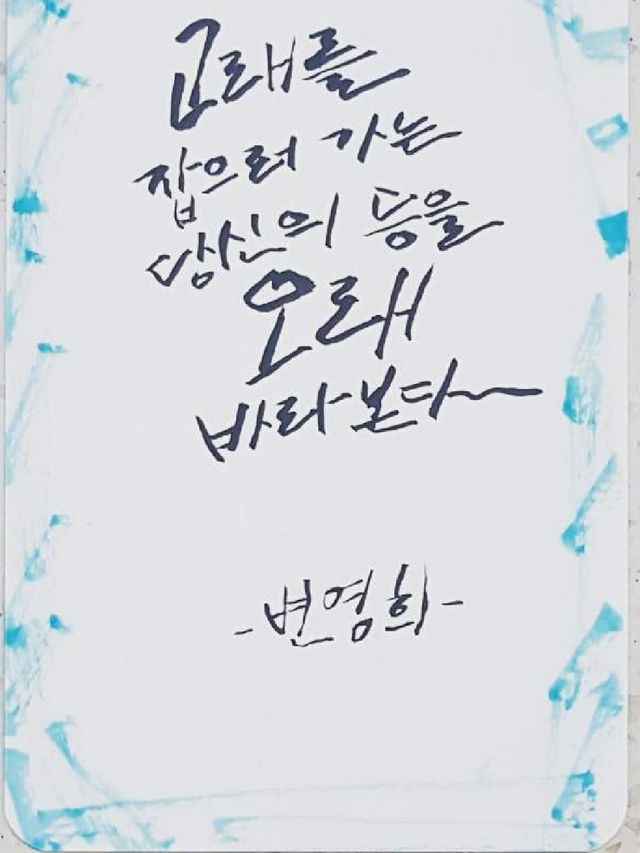 고래를
잡으러 가는
당신의 등을
오래
바라본다
-변영희-